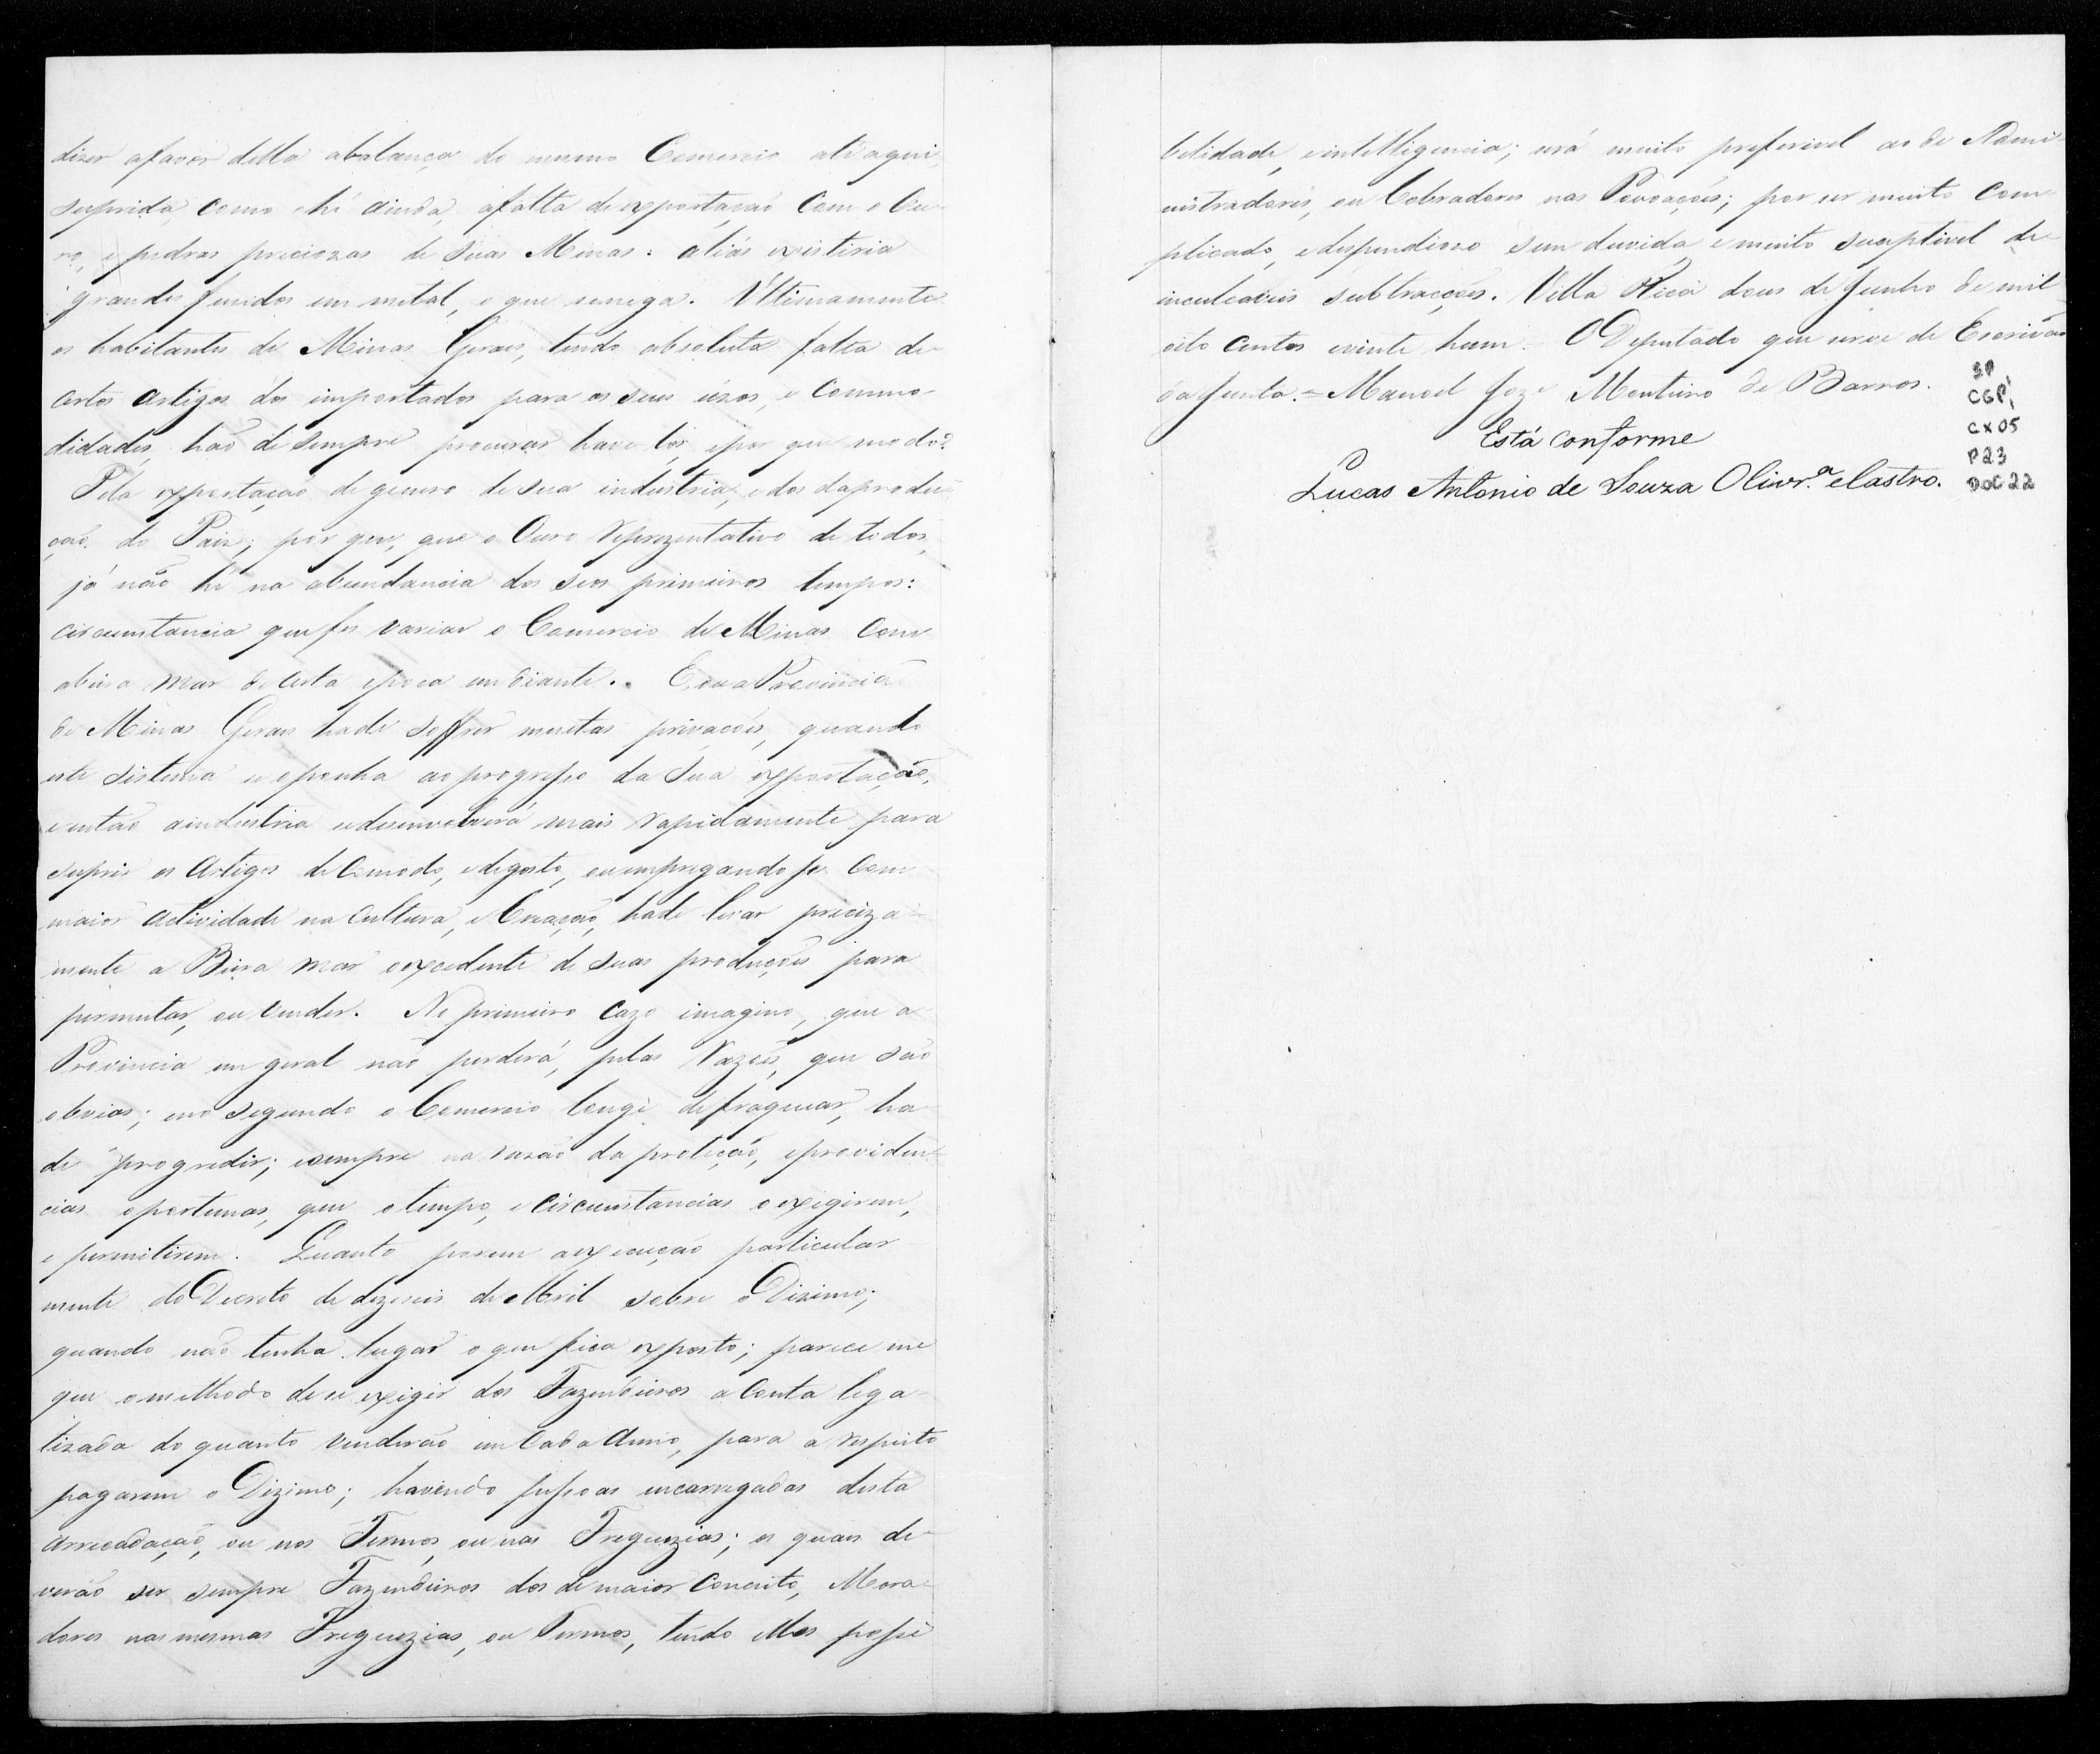 dizer afavor della abalança do mesmo Comercio até aqui
suprida, como hé ainda, afalta de exportação Com o Ou-
ro, e pedras preciozas de Suas Minas: aliás existiria
grandes fundos em metal, o que se nega. Ultimamente
os habitantes de Minas Geraes, tendo absoluta falta de
certos Artigos dos importados para os seus úzos, e Commo-
didades, hão de sempre procurar havelos, e por que modo?
Pela exportação de genero de sua industria, e dos da produ-
ção do Paiz; por que, que o Ouro Reprezentativo de todos,
já não hé na abundancia dos seos primeiros tempos:
circumstancia que fes variar o Comercio de Minas Com
abeira mar de certa época em diante. Ou a Provincia
de Minas Geraes hade soffrer muitas privações, quando
este Sistema se oponha ao progresso da Sua exportação,
e então aindustria se desenvolverá mais rapidamente para
suprir os Artigos de Comodo, e de gosto, ou empregando se Com
maior Actividade na Cultura, e Creação, hade levar preciza-
mente a Beira mar o excedente de suas produções para
permutar, ou vender. No primeiro Cazo imagino, que a
Provincia em geral não perderá, pelas Razões, que são
obvias; e no segundo o Comercio longe de fraquear, ha
de progredir; e sempre na razão da proteção, e providen-
cias oportunas, que o tempo, e Circumstancias o exigirem,
e permitirem. Quanto porem a execução particular-
mente do Decreto de dezeseis de Abril sobre o Dizimo;
quando não tenha lugar o que fica exposto; parece me
que o methodo de se exigir dos Fazendeiros a Conta lega-
lizada do quanto venderão em Cada Anno, para a respeito
pagarem o Dizimo; havendo pessoas encarregadas desta
Arrecadação, ou nos Termos, ou nas Freguezias; os quaes de-
verão ser sempre Fazendeiros dos de maior Conceito, Mora-
dores nas mesmas Freguezias, ou Termos, tendo elles possi-
bilidade, e intelligencia; será muito preferivel ao de Admi-
nistradores, ou Cobradores nas Povoações; por ser muito Com-
plicado, e dispendiozo sem duvida, e muito suceptivel de
inculcaveis subtracções. Villa Rica dous de Junho de mil
oito centos e vinte hum. O Deputado que serve de Escrivão
da Junta. = Manoel Joze Monteiro de Barros.
Está conforme
Lucas Antonio de Souza Olivr.ª e Castro.
SP
CGP1
CX05
P23
DOC 22